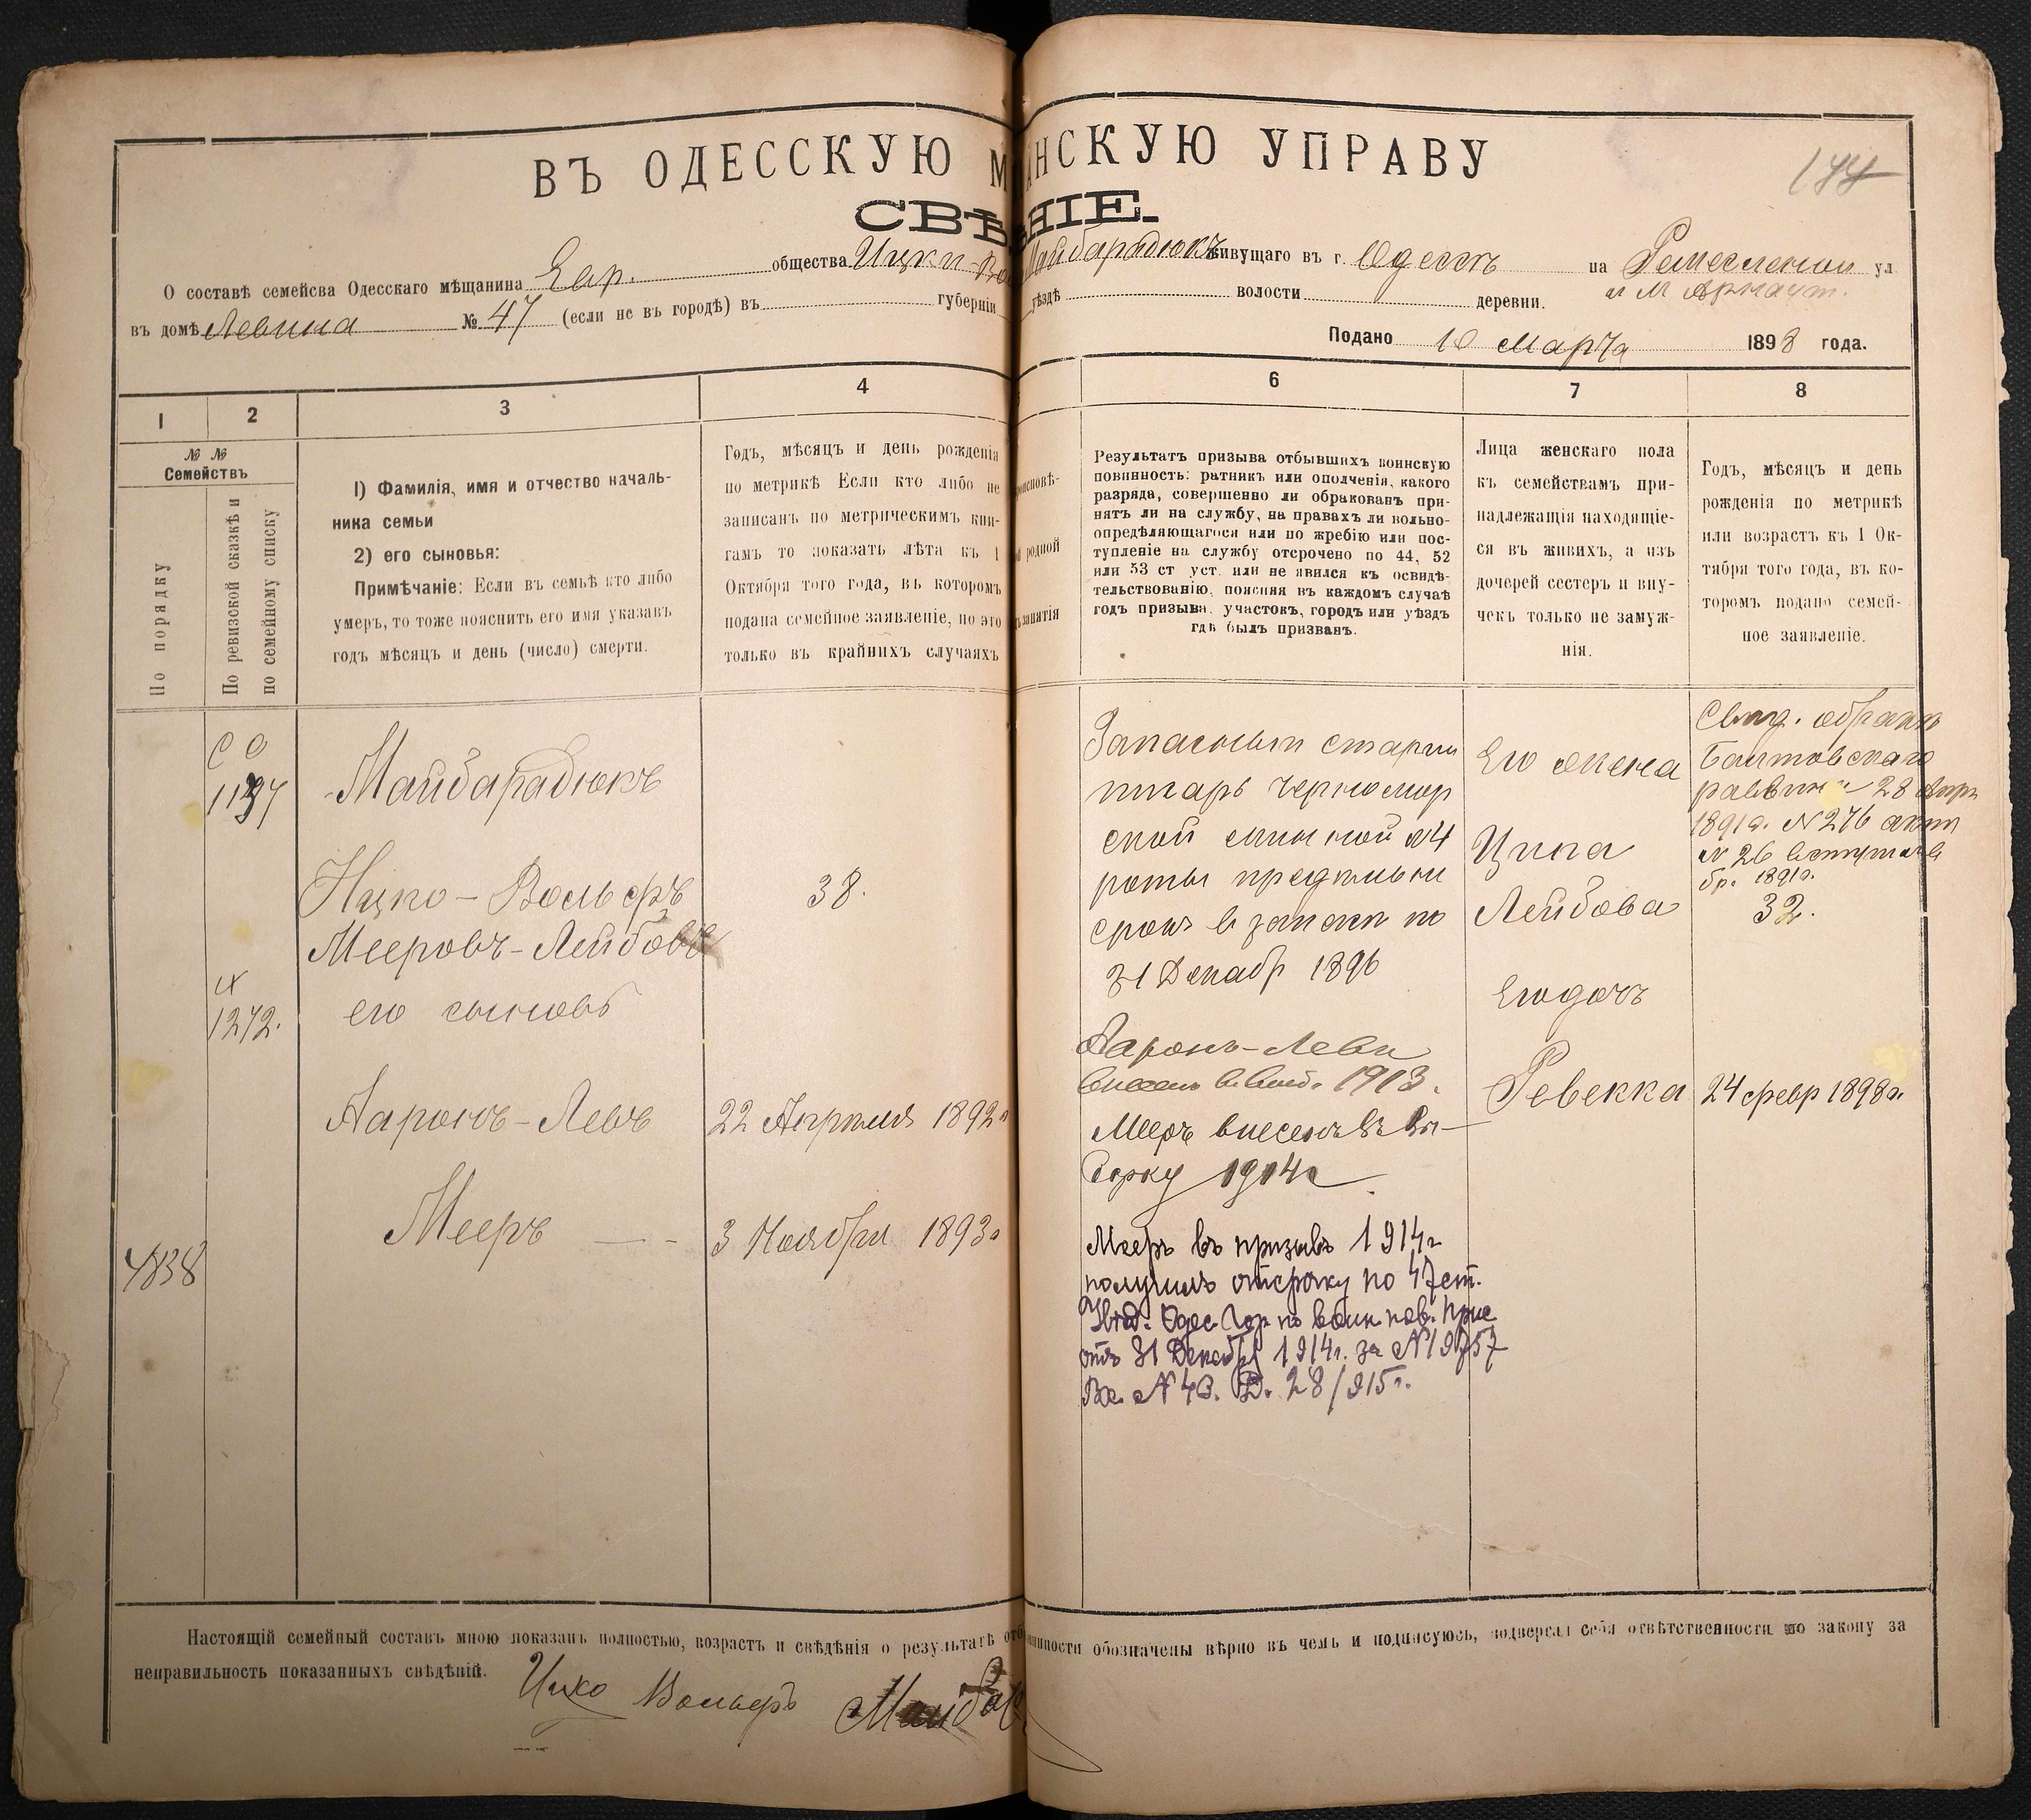 ВЪ ОДЕССКУЮ М НСКУЮ УПРАВУ
СВѢ НІЕ.
О составѣ семейсва Одесскаго мѣщанина Евр. общества Ицки-Во Майбарадюкъ живущаго въ г. Одессѣ на Ремесленой ул
и М Арнаут.
въ домѣ Левина № 47 (если не въ городѣ) въ губерніи уѣздѣ волости деревни.
Подано 10 Марта 1898 года.
1 2 3 4 6 7 8
№ № Семействъ
По порядку
По ревизской сказкѣ и
по семейному списку
1) Фамилія, имя и отчество началь-
ника семьи
2) его сыновья:
Примѣчаніе: Если въ семьѣ кто либо
умеръ, то тоже пояснить его имя указавъ
годъ мѣсяцъ и день (число) смерти.
Годъ, мѣсяцъ и день рожденія
по метрикѣ Если кто либо не
записанъ по метрическимъ кни-
гамъ то показать лѣта къ 1
Октября того года, въ которомъ
подана семейное заявленіе, но это
только въ крайнихъ случаяхъ
родной
занятія
Результатъ призыва отбывшихъ воинскую
повинность: ратникъ или ополченія, какого
разряда, совершенно ли обракованъ при-
нятъ ли на службу, на правахъ ли вольно-
опредѣляющагося или по жребію или пос-
тупленіе на службу отсрочено по 44, 52
или 53 ст уст. или не явился къ освидѣ-
тельствованію, поясняя въ каждомъ случаѣ
годъ призыва, участокъ, городъ или уѣздъ
гдѣ былъ призванъ.
Лица женскаго пола
къ семействамъ при-
надлежащія находящіе-
ся въ живихъ, а изъ
дочерей сестеръ и вну-
чекъ только не замуж-
нія.
Годъ, мѣсяцъ и день
рожденія по метрикѣ
или возрастъ къ 1 Ок-
тября того года, въ ко-
торомъ подано семей-
ное заявленіе.
Майбарадюкъ
Ицко-Вольфъ
Мееровъ-Лейбовъ
38.
1272.
его сыновь
Ааронъ-Левъ
22 Апрѣля 1892г
Мееръ
3 Ноября 1893г
4838
Запасный старш
писарь Черномор
ской минной №4
роты
срокъ въ запасѣ по
31 Декабр 1896
Ааронъ-Левъ
внесенъ 1913.
Мееръ внесенъ въ Вы-
борку 1914г
Мееръ въ призывъ 1914г
получилъ отсрочку по 47 ст.
Увѣд. Одес. Гор по воин. пов. Прис
отъ 31 Декабря 1914г. за №19757
Вх. №43. Д. 28/915г.
Его жена
Ципа
Лейбова
Его дочь
Ревекка
Балтовскаго
раввина 28 Апр
1891г. №276
№ 26
бр. 1891г.
32.
24 февр 1898г.
Настоящій семейный составъ мною показанъ полностью, возрастъ и свѣдѣнія о результатѣ отб инности обозначены вѣрно въ чемъ и подписуюсь, подвергая себя отвѣтственности по закону за
неправильность показанныхъ свѣдѣній.
Ицко Вольфъ Майбар